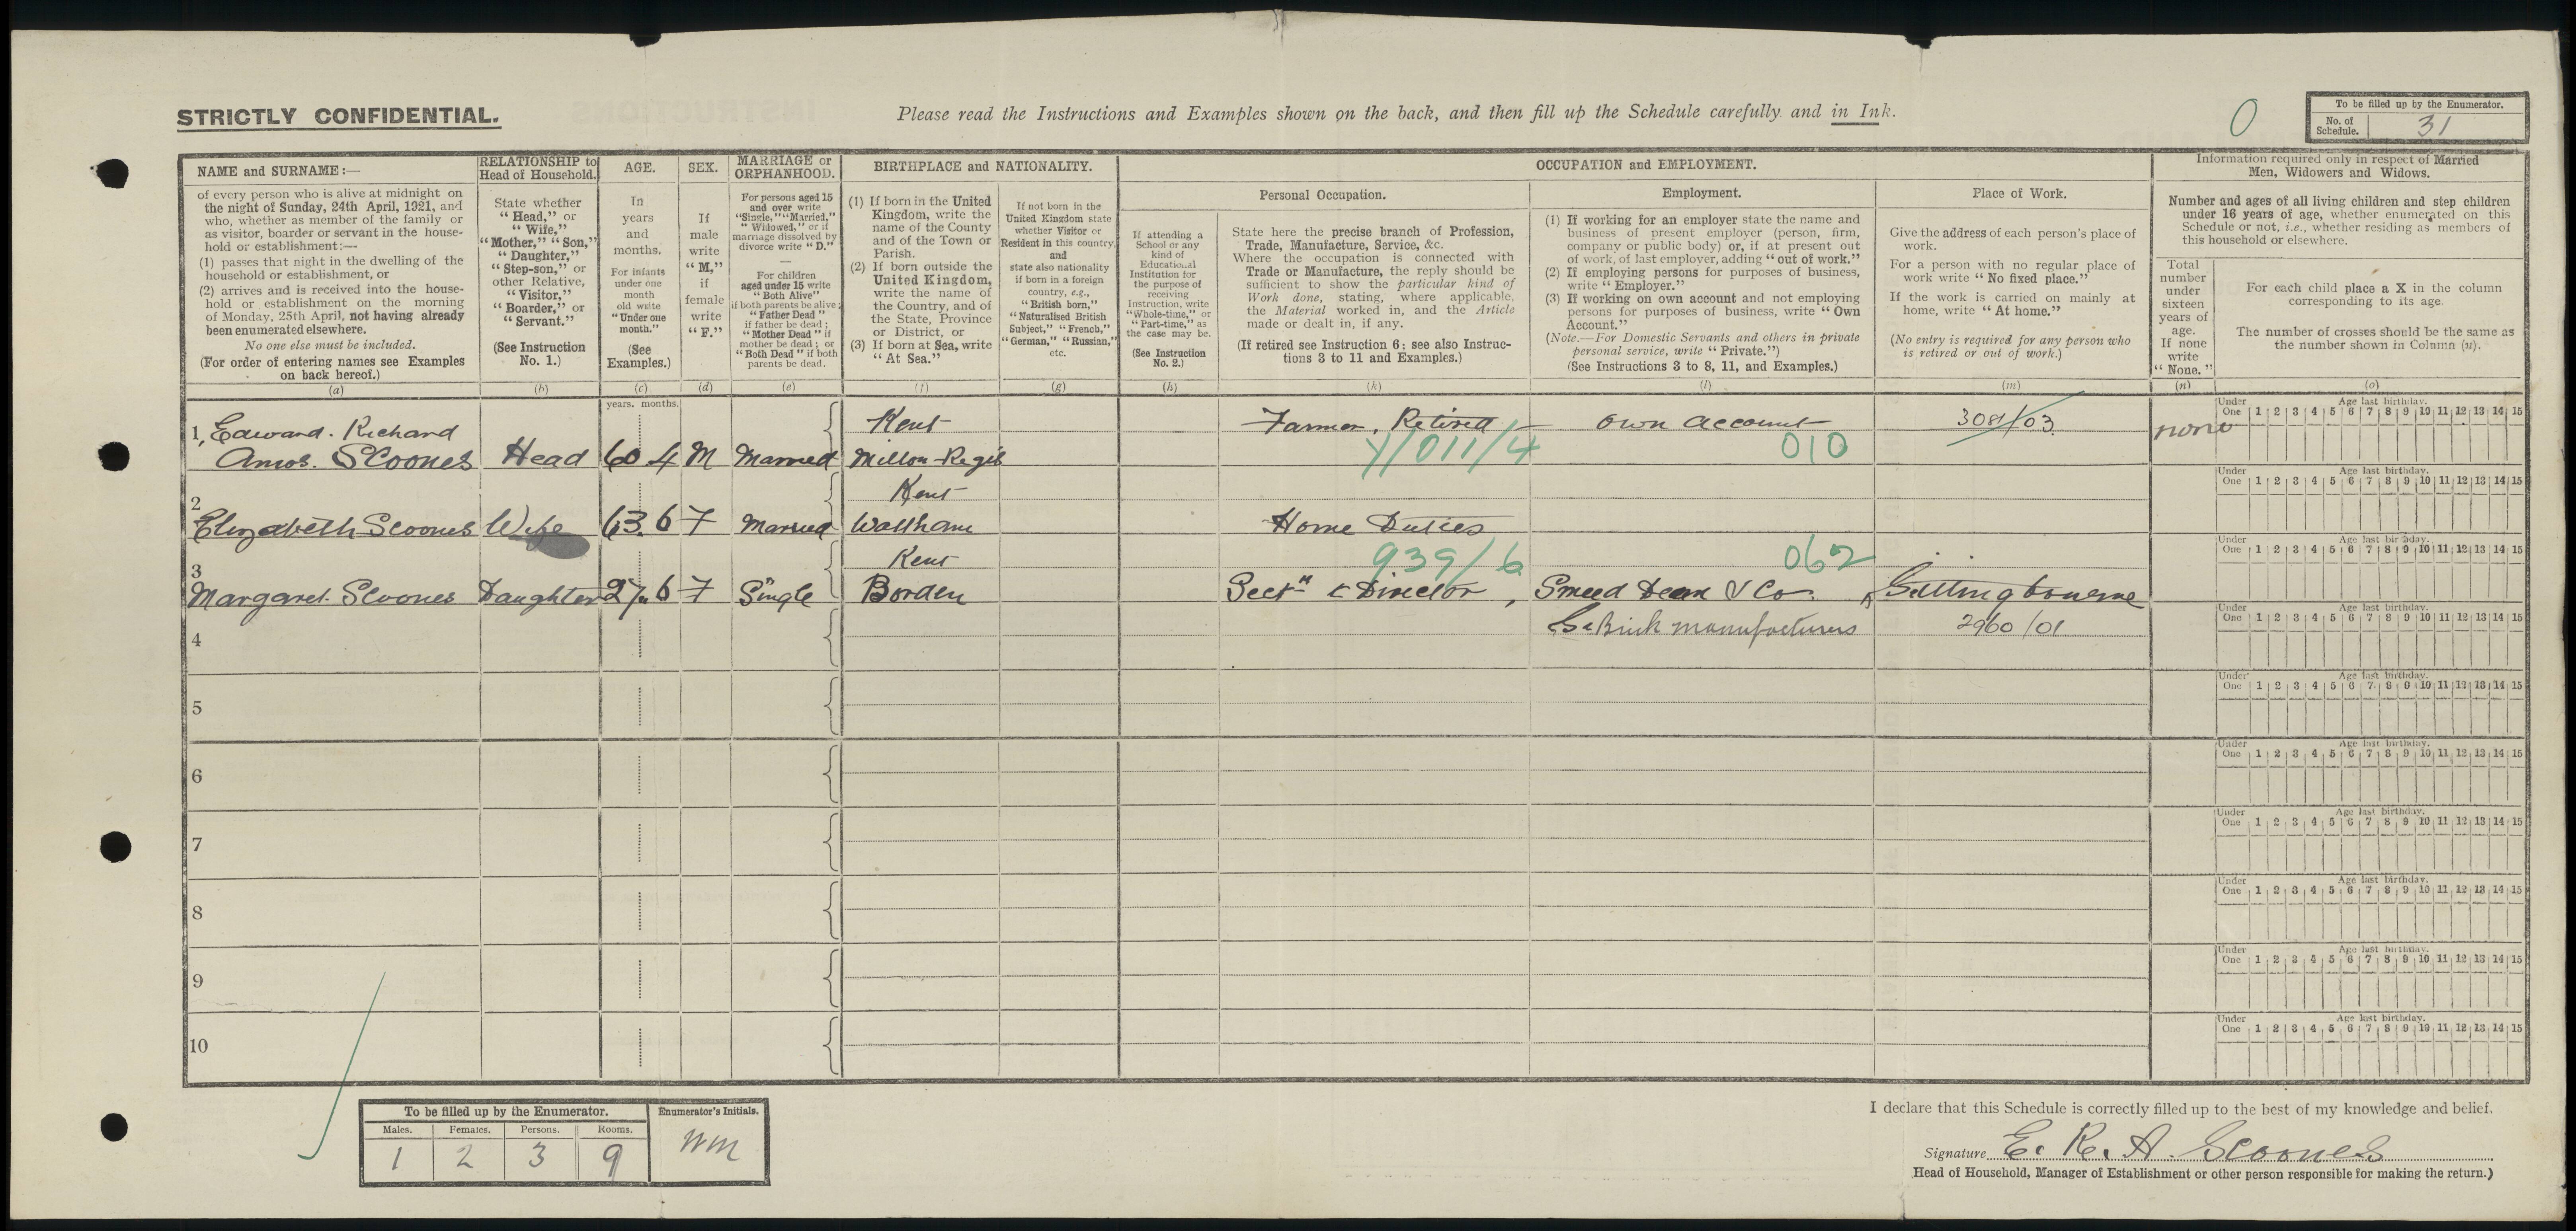 STRICTLY CONFIDENTIAL.
Please read the Instructions and Examples shown on the back, and then fill up the Schedule carefully and in Ink.
0
To be filled up by the Enumerator.
No. of Schedule. 31
NAME and SURNAME:—
of every person who is alive at midnight on
the night of Sunday, 24th April, 1921, and
who, whether as member of the family or
as visitor, boarder or servant in the house-
hold or establishment:—
(1) passes that night in the dwelling of the
household or establishment, or
(2) arrives and is received into the house-
hold or establishment on the morning
of Monday, 25th April, not having already
been enumerated elsewhere.
No one else must be included.
(For order of entering names see Examples
on back hereof.)
(a)
RELATIONSHIP to
Head of Household.
State whether
"Head," or
"Wife,"
"Mother," "Son,"
"Daughter,"
"Step-son," or
other Relative,
"Visitor,"
"Boarder," or
"Servant."
(See Instruction
No. 1.)
(b)
AGE.
In
years
and
months.
For infants
under one
month
old write
"Under one
month."
(See
Examples.)
(c)
SEX.
If
male
write
"M,"
if
female
write
"F."
(d)
MARRIAGE or
ORPHANHOOD.
For persons aged 15
and over write
"Single," "Married,"
"Widowed," or if
marriage dissolved by
divorce write "D."
—
For children
aged under 15 write
"Both Alive"
if both parents be alive;
"Father Dead"
if father be dead;
"Mother Dead" if
mother be dead; or
"Both Dead" if both
parents be dead.
(e)
BIRTHPLACE and NATIONALITY.
(1) If born in the United
Kingdom, write the
name of the County
and of the Town or
Parish.
(2) If born outside the
United Kingdom,
write the name of
the Country, and of
the State, Province
or District, or
(3) If born at Sea, write
"At Sea."
(f)
If not born in the
United Kingdom state
whether Visitor or
Resident in this country,
and
state also nationality
if born in a foreign
country, e.g.,
"British born,"
"Naturalised British
Subject," "French,"
"German," "Russian,"
etc.
(g)
OCCUPATION and EMPLOYMENT.
If attending a
School or any
kind of
Educational
Institution for
the purpose of
receiving
Instruction, write
"Whole-time," or
"Part-time," as
the case may be.
(See Instruction
No. 2.)
(h)
Personal Occupation.
State here the precise branch of Profession,
Trade, Manufacture, Service, &c.
Where the occupation is connected with
Trade or Manufacture, the reply should be
sufficient to show the particular kind of
Work done, stating, where applicable,
the Material worked in, and the Article
made or dealt in, if any.
(If retired see Instruction 6; see also Instruc-
tions 3 to 11 and Examples.)
(k)
Employment.
(1) If working for an employer state the name and
business of present employer (person, firm,
company or public body) or, if at present out
of work, of last employer, adding "out of work."
(2) If employing persons for purposes of business,
write "Employer."
(3) If working on own account and not employing
persons for purposes of business, write "Own
Account."
(Note.—For Domestic Servants and others in private
personal service, write "Private.")
(See Instructions 3 to 8, 11, and Examples.)
(l)
Place of Work.
Give the address of each person's place of
work.
For a person with no regular place of
work write "No fixed place."
If the work is carried on mainly at
home, write "At home."
(No entry is required for any person who
is retired or out of work.)
(m)
Information required only in respect of Married
Men, Widowers and Widows.
Number and ages of all living children and step children
under 16 years of age, whether enumerated on this
Schedule or not, i.e., whether residing as members of
this household or elsewhere.
Total
number
under
sixteen
years of
age.
If none
write
"None."
(n)
For each child place a X in the column
corresponding to its age.
The number of crosses should be the same as
the number shown in Column (n).
(o)
years. months.
1, Edward. Richard Kent Farmer, Retired own account 3081/03 none
Amos. Scoones Head 60 4 M Married Milton Regis Y/011/4 010
Under One Age last birthday. 1 2 3 4 5 6 7 8 9 10 11 12 13 14 15
2 Kent
Elizabeth Scoones Wife 63. 6 F Married Waltham Home Duties
Under One Age last birthday. 1 2 3 4 5 6 7 8 9 10 11 12 13 14 15
3 Kent 939/6 062
Margaret. Scoones Daughter 27. 6 F Single Borden Secty & Director, Smeed Dean & Co. Sittingbourne
Under One Age last birthday. 1 2 3 4 5 6 7 8 9 10 11 12 13 14 15
4 Brick manufacturers 2960/01
Under One Age last birthday. 1 2 3 4 5 6 7 8 9 10 11 12 13 14 15
5
Under One Age last birthday. 1 2 3 4 5 6 7 8 9 10 11 12 13 14 15
6
Under One Age last birthday. 1 2 3 4 5 6 7 8 9 10 11 12 13 14 15
7
Under One Age last birthday. 1 2 3 4 5 6 7 8 9 10 11 12 13 14 15
8
Under One Age last birthday. 1 2 3 4 5 6 7 8 9 10 11 12 13 14 15
9
Under One Age last birthday. 1 2 3 4 5 6 7 8 9 10 11 12 13 14 15
10
Under One Age last birthday. 1 2 3 4 5 6 7 8 9 10 11 12 13 14 15
To be filled up by the Enumerator.
Males. Females. Persons. Rooms.
1 2 3 9
Enumerator's Initials.
WM
I declare that this Schedule is correctly filled up to the best of my knowledge and belief.
Signature E. R. A. Scoones
Head of Household, Manager of Establishment or other person responsible for making the return.)